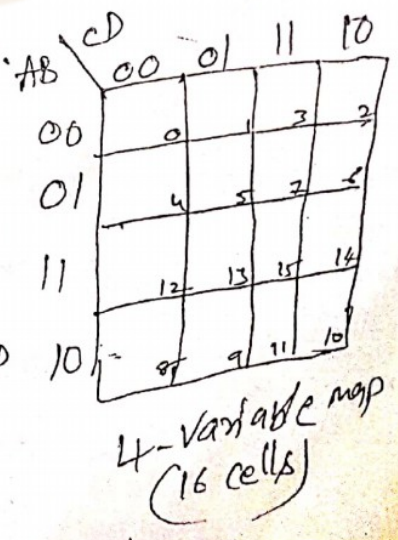 CD
AB 00 01 11 10
00 0 1 3 2
01 4 5 7 6
11 12 13 15 14
10 8 9 11 10
4-variable map
(16 cells)